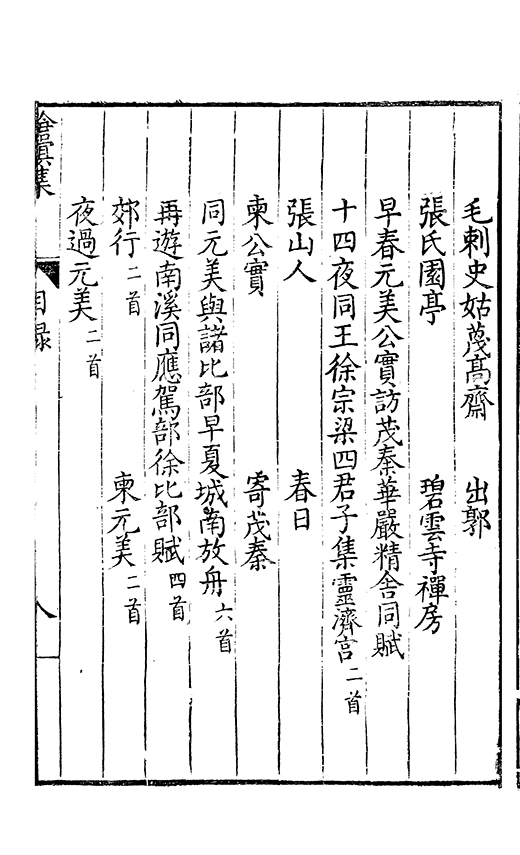 毛刺史姑蔑髙齋 出郭
張氏園亭 碧雲寺禪房
早春元美公實訪茂秦華嚴精舍同賦
十四夜同王徐宗梁四君子集靈濟宫二首
張山人 春日
柬公實 寄茂秦
同元美與諸比部早夏城南放舟六首
再遊南溪同應駕部徐比部賦四首
郊行二首 柬元美二首
夜過元美二首
滄溟集 目録 八